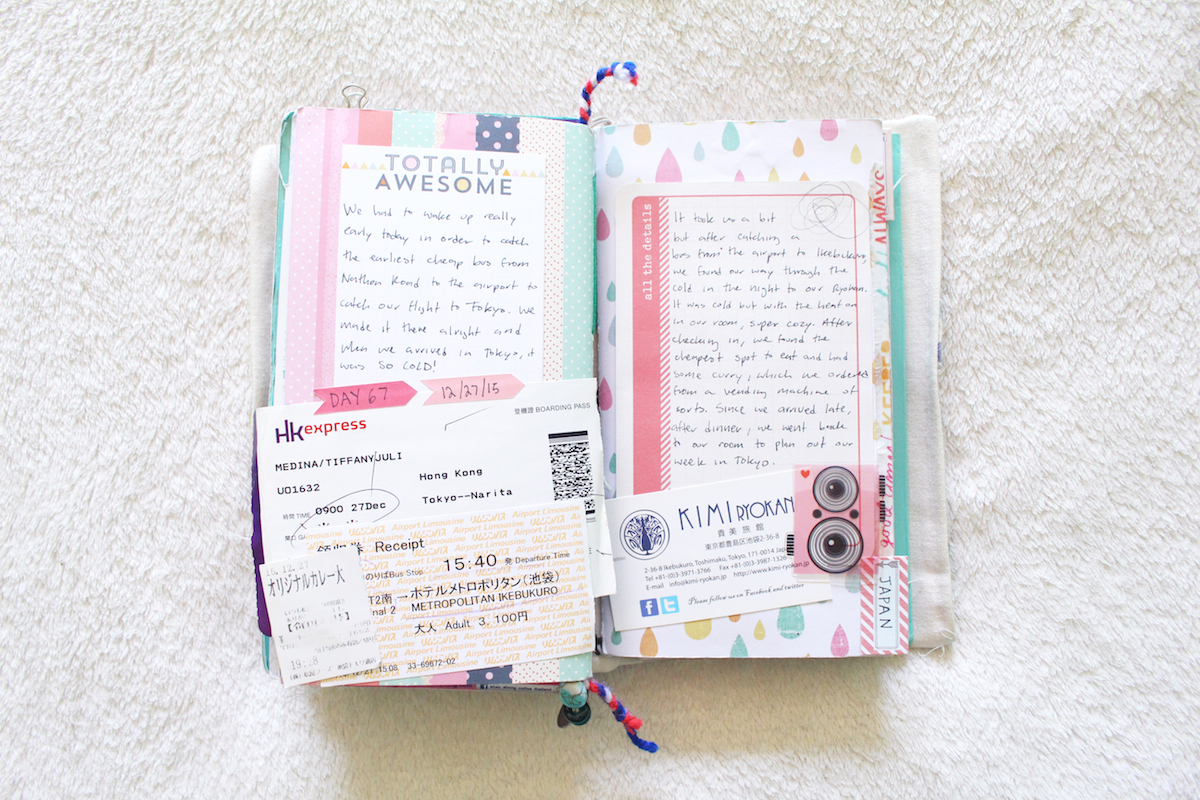 TOTALLY
AWESOME
We had to wake up really
early today in order to catch
the earliest cheap bus from
Nathan Road to the airport to
catch our flight to Tokyo. We
made it there alright and
when we arrived in Tokyo, it
was SO COLD!
DAY 67
12/27/15
HK express
登機證 BOARDING PASS
MEDINA/TIFFANYJULI
UO1632
Hong Kong
Tokyo--Narita
時間 TIME 0900 27Dec
Airport Limousine
領収券 Receipt
のりばBus Stop 15:40 発 Departure Time
T2南 →ホテルメトロポリタン(池袋)
nal 2 METROPOLITAN IKEBUKURO
大人 Adult 3,100円
15:08 33-69872-02
オリジナルカレー大
19:28
all the details
It took us a bit
but after catching a
bus from the airport to Ikebukuro,
we found our way through the
cold in the night to our Ryokan.
It was cold but with the heat on
in our room, super cozy. After
checking in, we found the
cheapest spot to eat and had
some curry, which we ordered
from a vending machine of
sorts. Since we arrived late,
after dinner, we went back
to our room to plan out our
week in Tokyo.
KIMI RYOKAN
貴美旅館
東京都豊島区池袋2-36-8
2-36-8 Ikebukuro, Toshimaku, Tokyo, 171-0014 Japa
Tel +81-(0)3-3971-3766 Fax +81-(0)3-3987-1326
E-mail info@kimi-ryokan.jp http://www.kimi-ryokan.jp
Please follow us on Facebook and twitter
ALWAYS
JAPAN